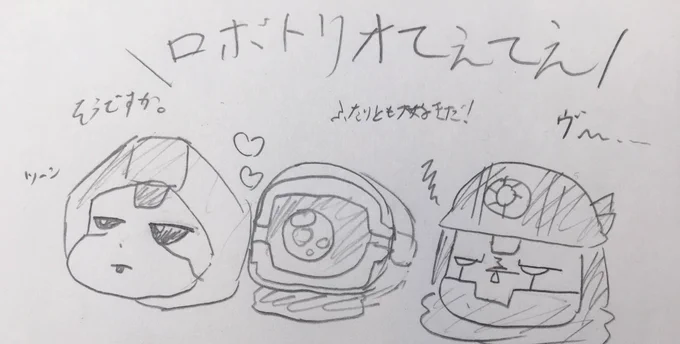 ロボトリオてぇてぇ
そうですか。
ふたりとも大好きだ!
ヴ〜…
ツーン